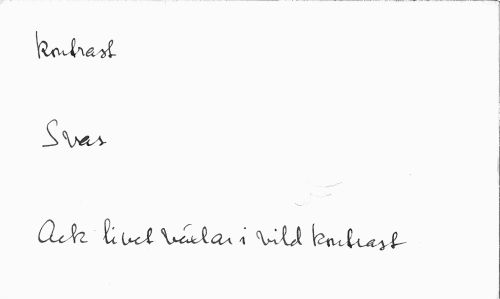 kontrast
Svas
Ack livet växlar i vild kontrast